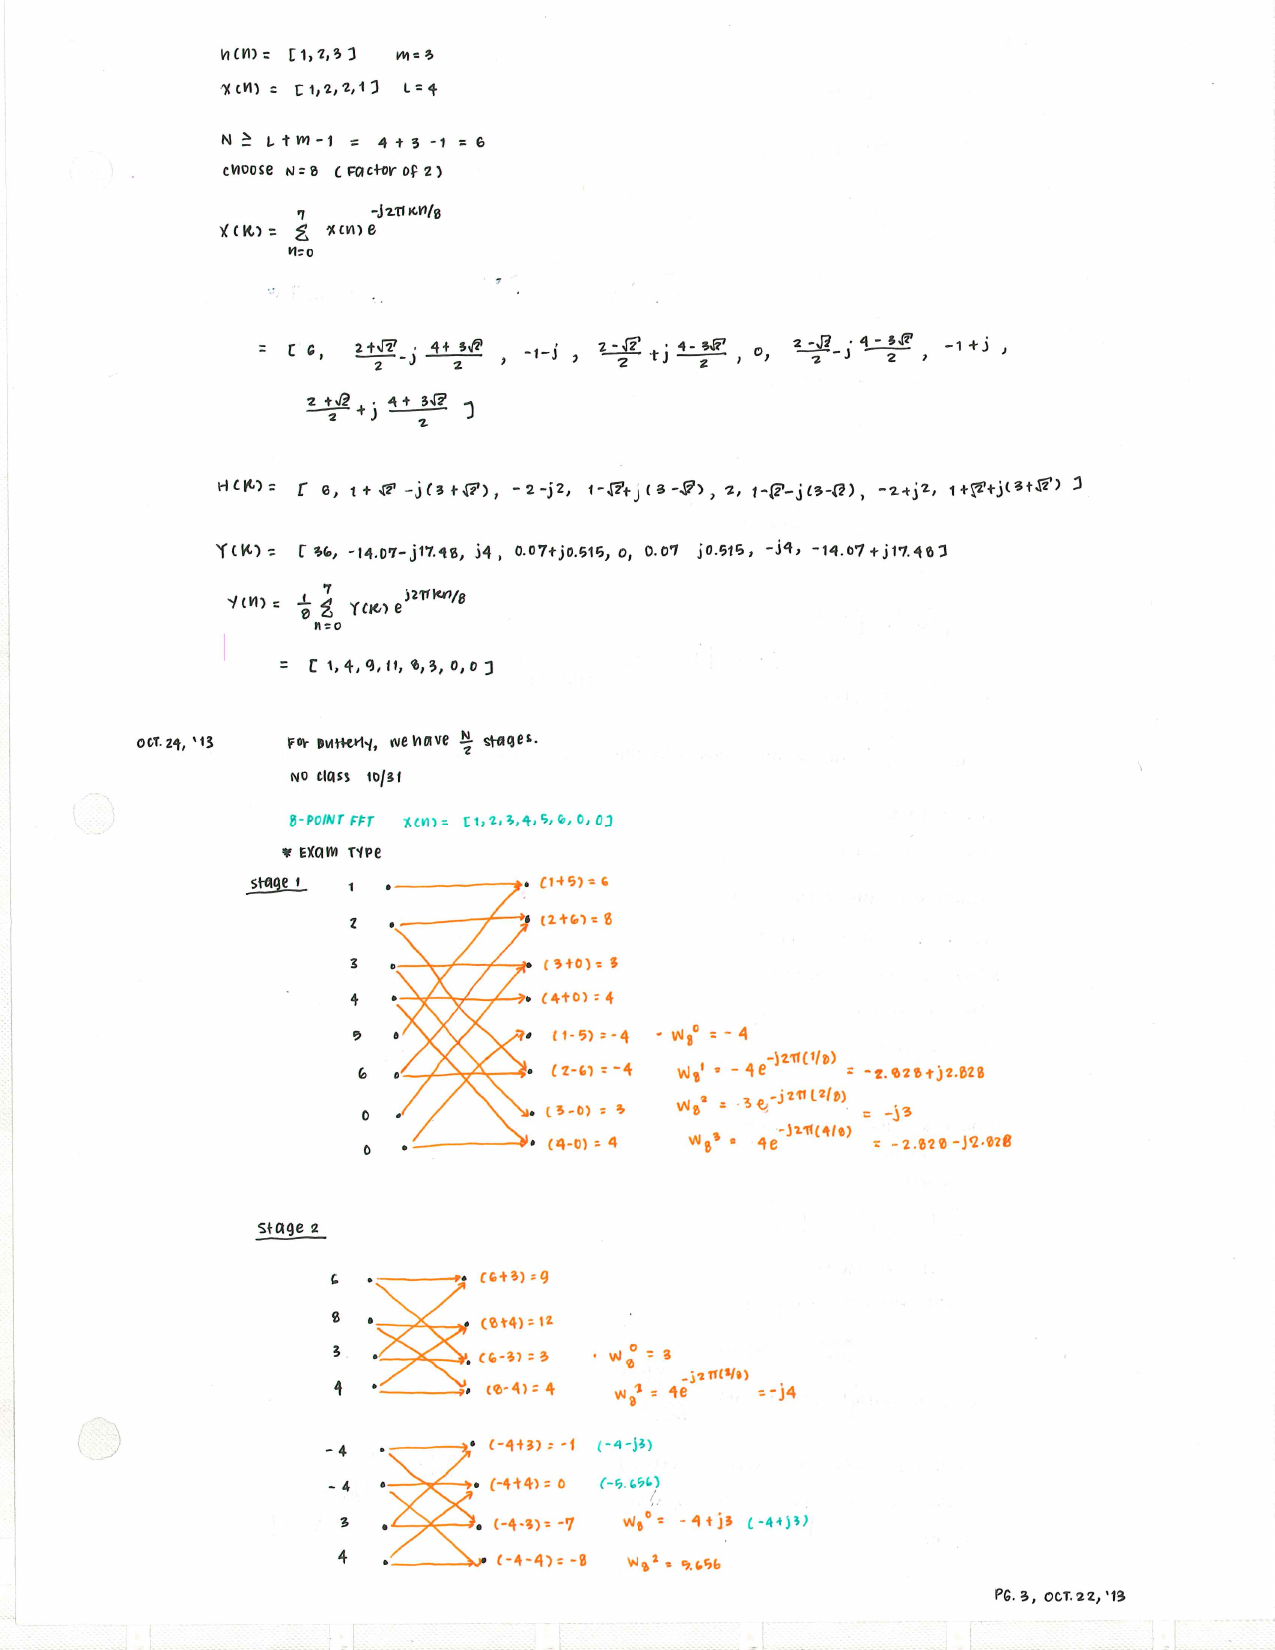 h(n) = [1, 2, 3] m = 3
x(n) = [1, 2, 2, 1] L = 4
N ≥ L + m - 1 = 4 + 3 - 1 = 6
choose N = 8 (Factor of 2)
X(k) = Σ_{n=0}^{7} x(n) e^{-j2πkn/8}
= [ 6, (2+√2)/2 - j (4+3√2)/2, -1-j, (2-√2)/2 + j (4-3√2)/2, 0, (2-√2)/2 - j (4-3√2)/2, -1+j,
(2+√2)/2 + j (4+3√2)/2 ]
H(k) = [ 6, 1+√2 -j(3+√2), -2-j2, 1-√2+j(3-√2), 2, 1-√2-j(3-√2), -2+j2, 1+√2+j(3+√2) ]
Y(k) = [ 36, -14.07-j17.48, j4, 0.07+j0.515, 0, 0.07 j0.515, -j4, -14.07+j17.48 ]
y(n) = 1/8 Σ_{n=0}^{7} Y(k) e^{j2πkn/8}
= [ 1, 4, 9, 11, 8, 3, 0, 0 ]
OCT. 24, '13 For Butterfly, we have N/2 stages.
NO class 10/31
8-POINT FFT x(n) = [1, 2, 3, 4, 5, 6, 0, 0]
* EXAM TYPE
stage 1 1 (1+5) = 6
2 (2+6) = 8
3 (3+0) = 3
4 (4+0) = 4
5 (1-5) = -4 · W_8^0 = -4
6 (2-6) = -4 W_8^1 = -4e^{-j2π(1/8)} = -2.828+j2.828
0 (3-0) = 3 W_8^2 = 3e^{-j2π(2/8)} = -j3
0 (4-0) = 4 W_8^3 = 4e^{-j2π(4/8)} = -2.828-j2.828
Stage 2
6 (6+3) = 9
8 (8+4) = 12
3 (6-3) = 3 · W_8^0 = 3
4 (8-4) = 4 W_8^2 = 4e^{-j2π(2/8)} = -j4
-4 (-4+3) = -1 (-4-j3)
-4 (-4+4) = 0 (-5.656)
3 (-4-3) = -7 W_8^0 = -4+j3 (-4+j3)
4 (-4-4) = -8 W_8^2 = 5.656
PG. 3, OCT. 22, '13